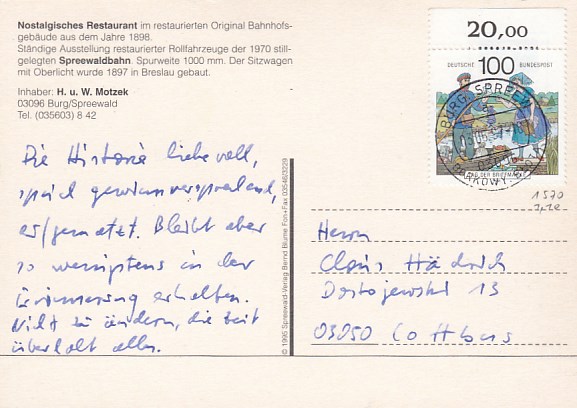 Nostalgisches Restaurant im restaurierten Original Bahnhofs-
gebäude aus dem Jahre 1898.
Ständige Ausstellung restaurierter Rollfahrzeuge der 1970 still-
gelegten Spreewaldbahn. Spurweite 1000 mm. Der Sitzwagen
mit Oberlicht wurde 1897 in Breslau gebaut.
Inhaber: H. u. W. Motzek
03096 Burg/Spreewald
Tel. (035603) 8 42
Die Historie liebevoll,
sprich gewinnversprechend,
ausgenutzt. Bleibt aber
so wenigstens in der
Erinnerung erhalten.
Nicht zu ändern, die Zeit
überholt alles.
© 1995 Spreewald-Verlag Bernd Blume Fon+Fax 035463229
20,00
DEUTSCHE BUNDESPOST
100
TAG DER BRIEFMARKE
BURG, SPREEW
1570
Herrn
Claus Hädrich
Dostojewski 13
03050 Cottbus